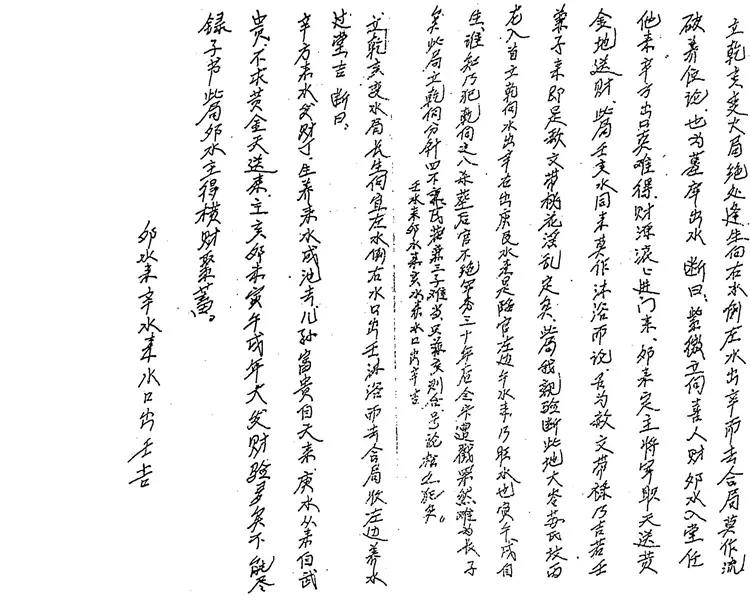 立乾亥变火局绝处逢生向右水倒左水出辛而去合局莫作流
破养位论也为墓库出水 断曰：紫微立向喜人财卯水入堂任
他来辛方出口英难得财源滚滚进门来、卯来定主将军职天送黄
金地送财、此局壬亥水同来莫作沐浴而论、名为敖文带禄乃吉若壬
兼子来即是敖文带桃花淫乱定矣、此局我親验断此地大岺苏氏坟西
龙入首立乾向水出辛在出庚艮水来是临官左边午水来乃旺水也寅午戌自
生、谁知乃犯乾向之八杀葬后官不绝至秀三十年后全家遭戮果然难为长子
矣此局立乾向分针四不兼民若兼三子难当只兼亥则合号论
壬水来卯水来亥水来水口出辛吉
立乾亥变水局长生向宜左水倒右水口出壬沐浴而去合局収左边养水
过堂吉 断曰：
辛方来水发财丁、生养来水成池去儿孙富贵自天来庚水从来自武
贵、不求黄金天送来、主亥卯未寅午戌年大发财验多矣不能尽
録子书此局卯水主得横财聚蓄。
卯水来辛水来水口出壬吉